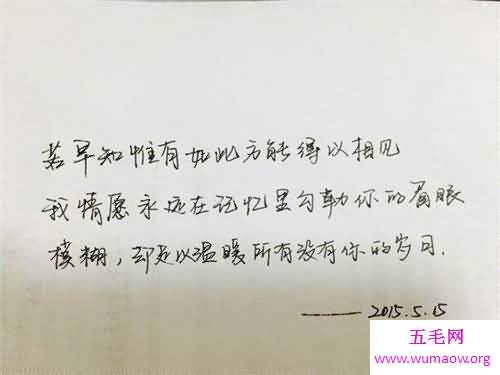 若早知惟有如此方能得以相见
我情愿永远在记忆里勾勒你的眉眼
模糊，却足以温暖所有没有你的岁月.
——2015.5.15
五毛网
www.wumaow.org